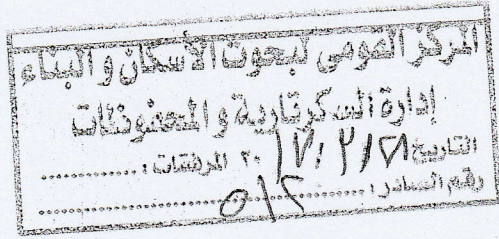 المركز القومى لبحوث الأسكان والبناء
إدارة السكرتارية والمحفوظات
التاريخ ٢٠١٧/٣/٢٨ المرفقات : ..............
رقم الصادر : ٥١٢